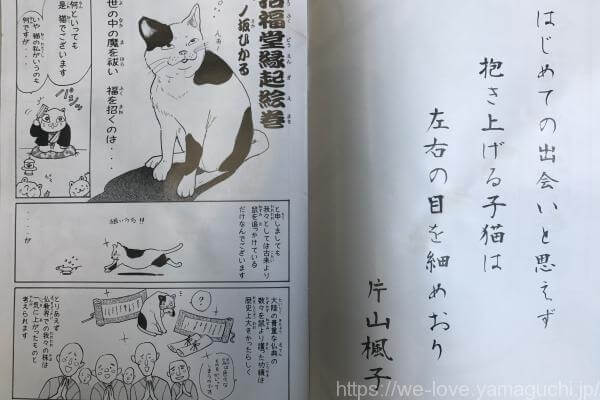 はじめての出会いと思えず
抱き上げる子猫は
左右の目を細めおり
片山楓子
招福堂縁起絵巻
ノ坂ひかる
世の中の魔を祓い 福を招くのは・・・・
何といっても
是猫でございます
いや 猫の私がいうのも
何ですが・・
と申しましても
我々としては古来より
鼠を追っかけている
だけなんでございます
大陸の貴重な仏典の
数々を鼠より護った功績は
歴史上大きかったらしく
?
とりあえず
仏教界での我々の株は
一気に上がったものと
考えられます
https://we-love.yamaguchi.jp/